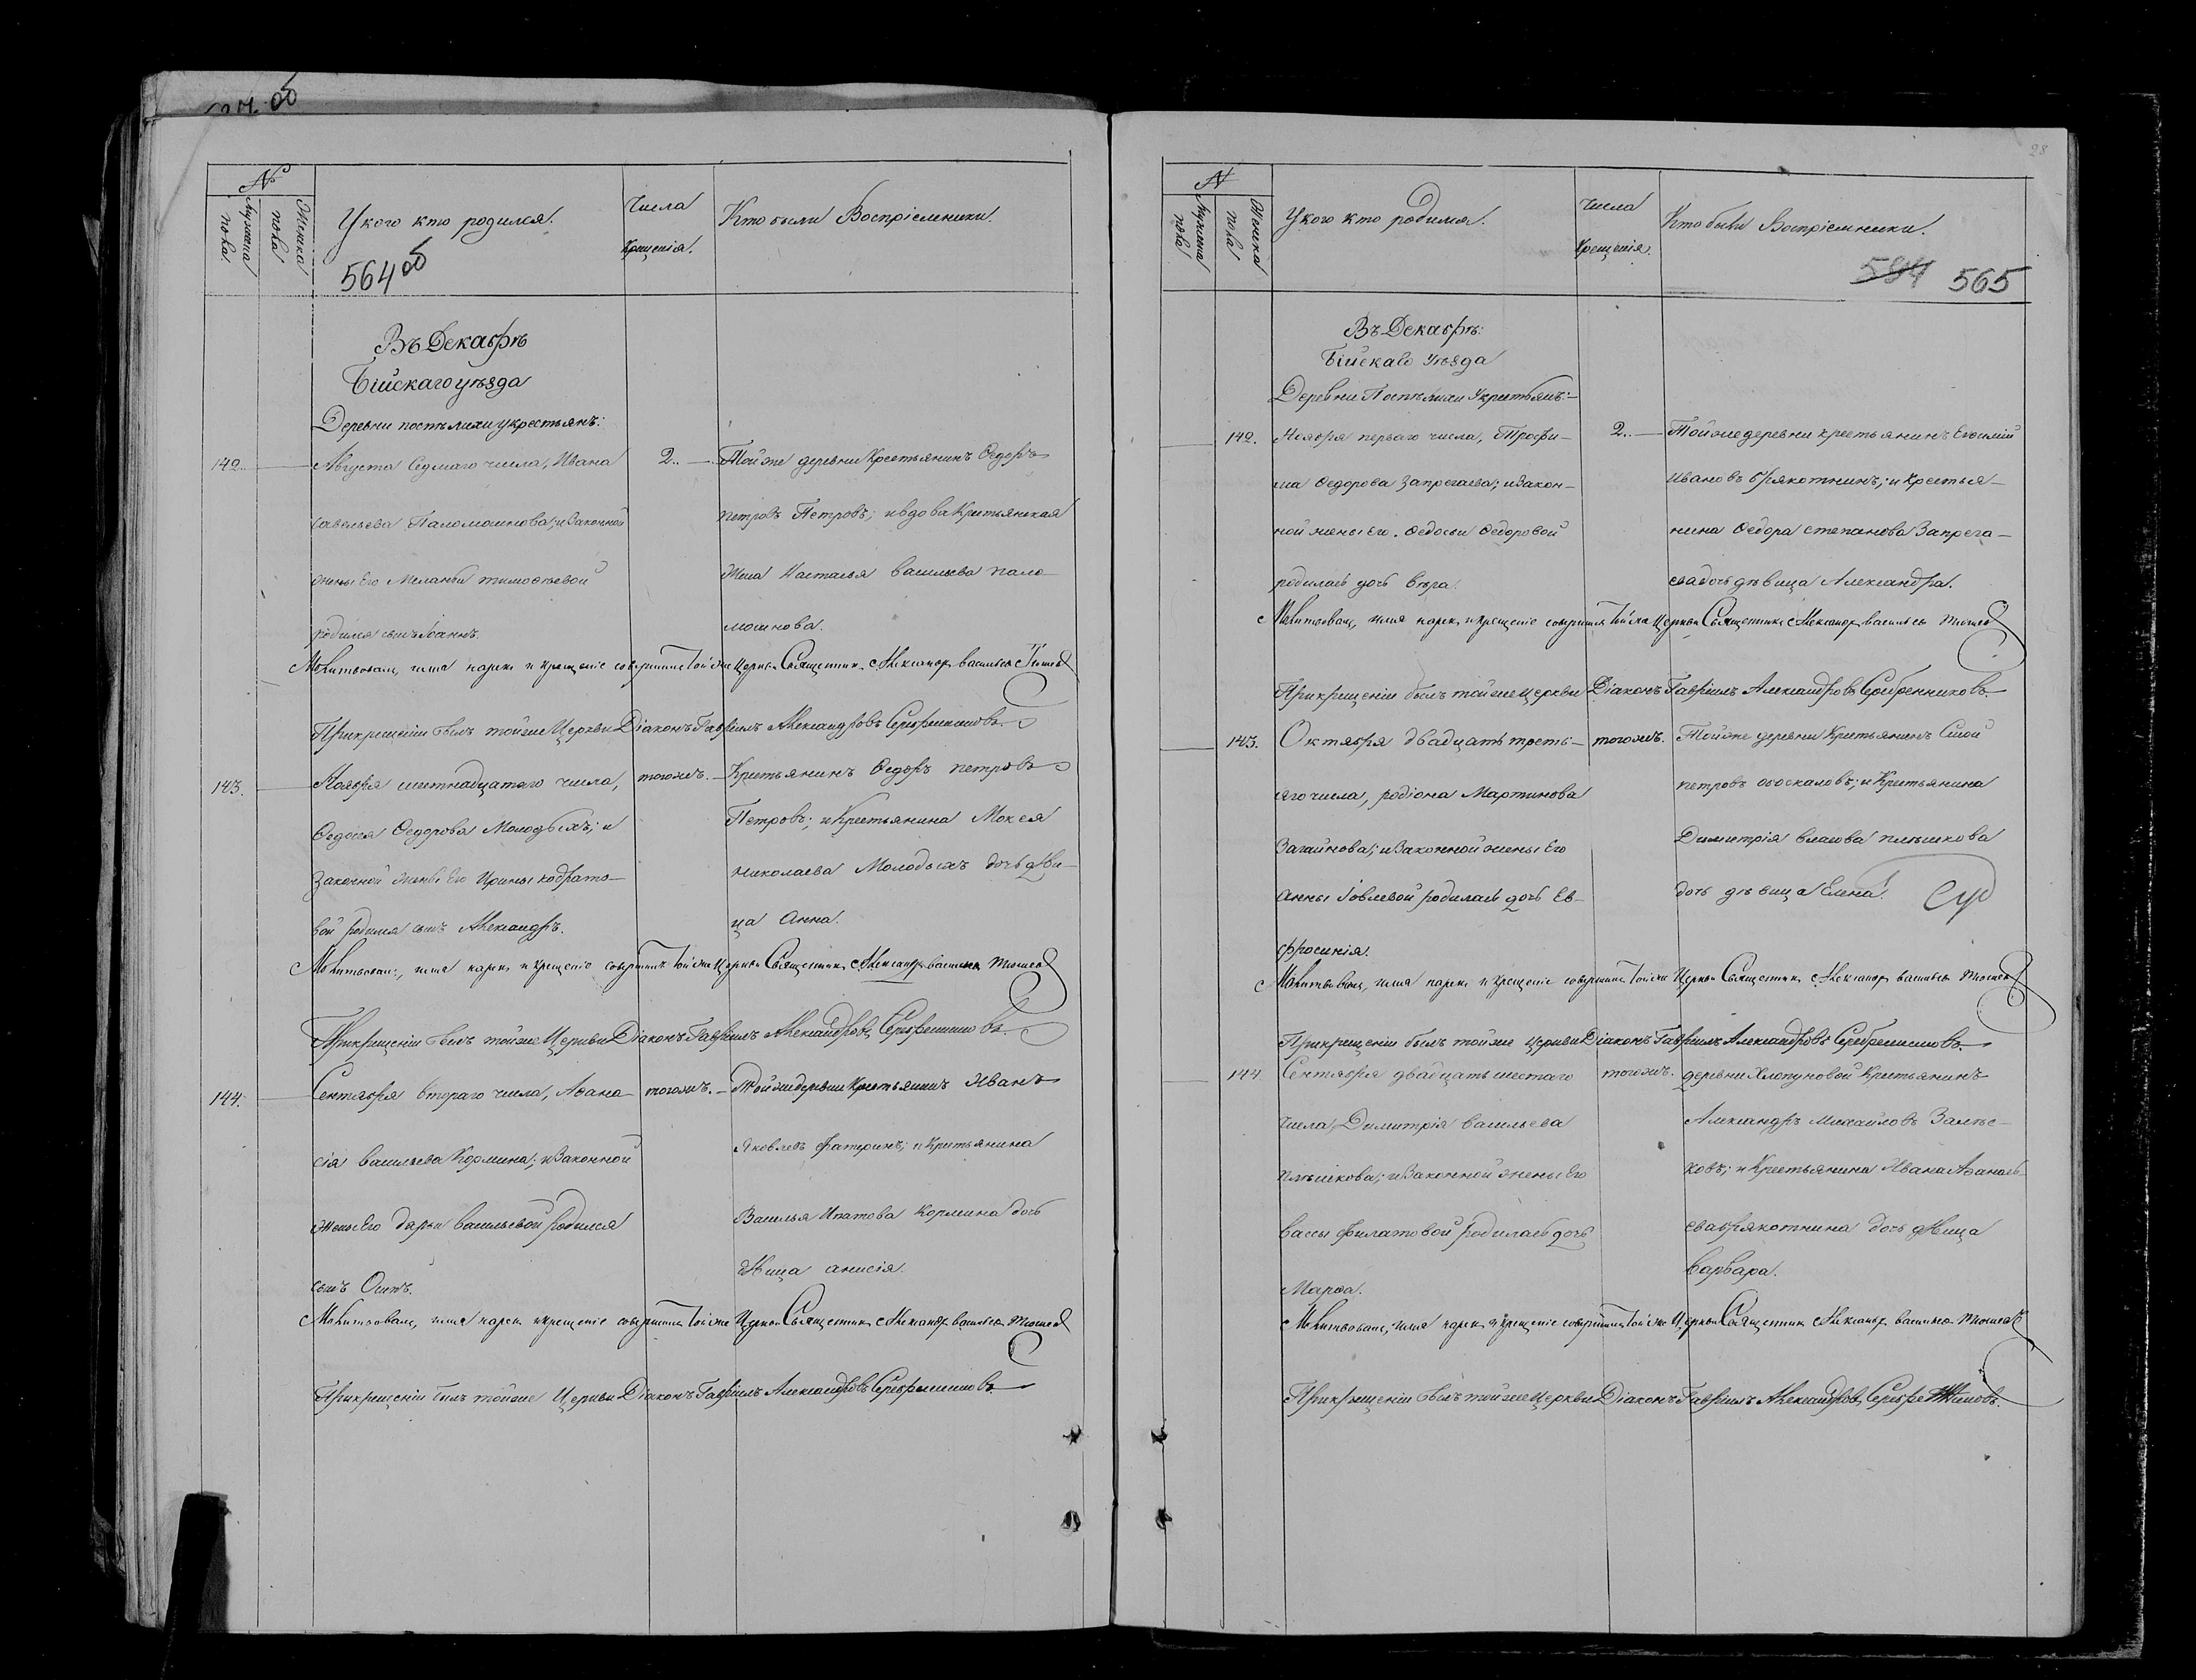 №
Мужеска пола
Женска пола
У кого кто родился.
Числа
Крещенія.
Кто были Воспріемники.
564 об
Въ Декабрѣ
Бійскаго уѣзда
Деревни поспѣлихи у крестьянъ:
142.
Августа Седмаго числа, Ивана
савельева Паломошнова; и законной
жены Его Меланьи тимоѳѣевой
родился сынъ Іоаннъ.
2..
Той же деревни Крестьянинъ Ѳедоръ
петровъ Петровъ; и вдова Крестьянская
Жена Настасья васильева пало-
мошнова.
Молитвовалъ, имя нарекъ и крещеніе совершилъ Той же Церкви Священникъ Александръ васильевъ
При крещеніи былъ той же Церкви Діаконъ Гавріилъ Александровъ Серебренниковъ.
143.
Ноября шестнадцатаго числа,
Ѳедосѣя Ѳедорова Молодыхъ; и
Законной жены Его Ирины кодрато-
вой родился сынъ Александръ.
тогожъ.
Крестьянинъ Ѳедоръ петровъ
Петровъ; и Крестьянина Мокея
николаева Молодыхъ дочь дѣви-
ца Анна.
Молитвовалъ, имя нарекъ и крещеніе совершилъ Той же Церкви Священникъ Александръ васильевъ
При крещеніи былъ той же Церкви Діаконъ Гавріилъ Александровъ Серебренниковъ.
144.
Сентября втораго числа, Аѳана-
сія васильева Кормина; и Законной
жены Его дарьи васильевой родился
сынъ Осипъ.
тогожъ.
Той же деревни Крестьянинъ Иванъ
Яковлевъ Фатеринъ; и Крестьянина
Василья Ипатова Кормина дочь
дѣвица анисія.
Молитвовалъ, имя нарекъ и крещеніе совершилъ Той же Церкви Священникъ Александръ васильевъ
При крещеніи былъ той же Церкви Діаконъ Гавріилъ Александровъ Серебренниковъ.
28
№
Мужеска пола
Женска пола
У кого кто родился.
Числа
Крещенія.
Кто были Воспріемники.
565
Въ Декабрѣ:
Бійскаго уѣзда
Деревни Поспѣлихи У крестьянъ:
142.
Ноября перваго числа, Трофи-
ма Ѳедорова Запрегаева; и закон-
ной жены Его. Ѳедосьи Ѳедоровой
родилась дочь вѣра.
2..
Той же деревни крестьянинъ
ивановъ брякотнинъ; и Крестья-
нина Ѳедора степанова Запрега-
ева дочь дѣвица Александра.
Молитвовалъ, имя нарекъ и крещеніе совершилъ Той же Церкви Священникъ Александръ васильевъ
При крещеніи былъ той же церкви Діаконъ Гавріилъ Александровъ Серебренниковъ.
143.
Октября двадцать треть-
яго числа, родіона Мартинова
Загайнова; и Законной жены Его
анны Іовлевой родилась дочь Ев-
фросинія.
тогожъ.
Той же деревни Крестьянинъ Сысой
петровъ обоскаловъ; и Крестьянина
Димитрія власова плѣшкова
дочь дѣвица Елена.
Молитвовалъ, имя нарекъ и крещеніе совершилъ Той же Церкви Священникъ Александръ васильевъ
При крещеніи былъ той же церкви Діаконъ Гавріилъ Александровъ Серебренниковъ.
144.
Сентября двадцать шестаго
числа, Димитрія васильева
плѣшкова; и Законной жены Его
вассы Филатовой родилась дочь
Марѳа.
тогожъ.
деревни Хлопуновой Крестьянинъ
Александръ Михайловъ Залѣс-
ковъ; и Крестьянина Ивана Аѳанась-
ева брякотнина дочь дѣвица
варвара.
Молитвовалъ, имя нарекъ и крещеніе совершилъ Той же Церкви Священникъ Александръ васильевъ
При крещеніи былъ той же Церкви Діаконъ Гавріилъ Александровъ Серебренниковъ.